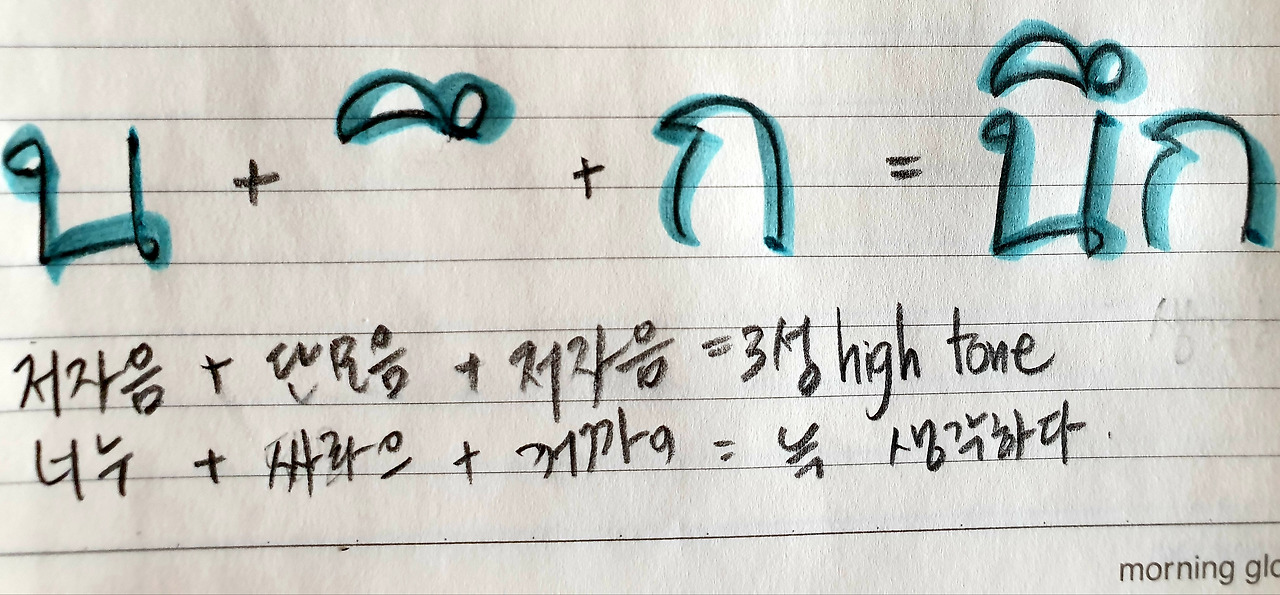 น + ึ + ก = นึก
저자음 + 단모음 + 저자음 =3성 high tone
너누 + 싸라으 + 꺼까이 = 늑 생각하다.
morning glo